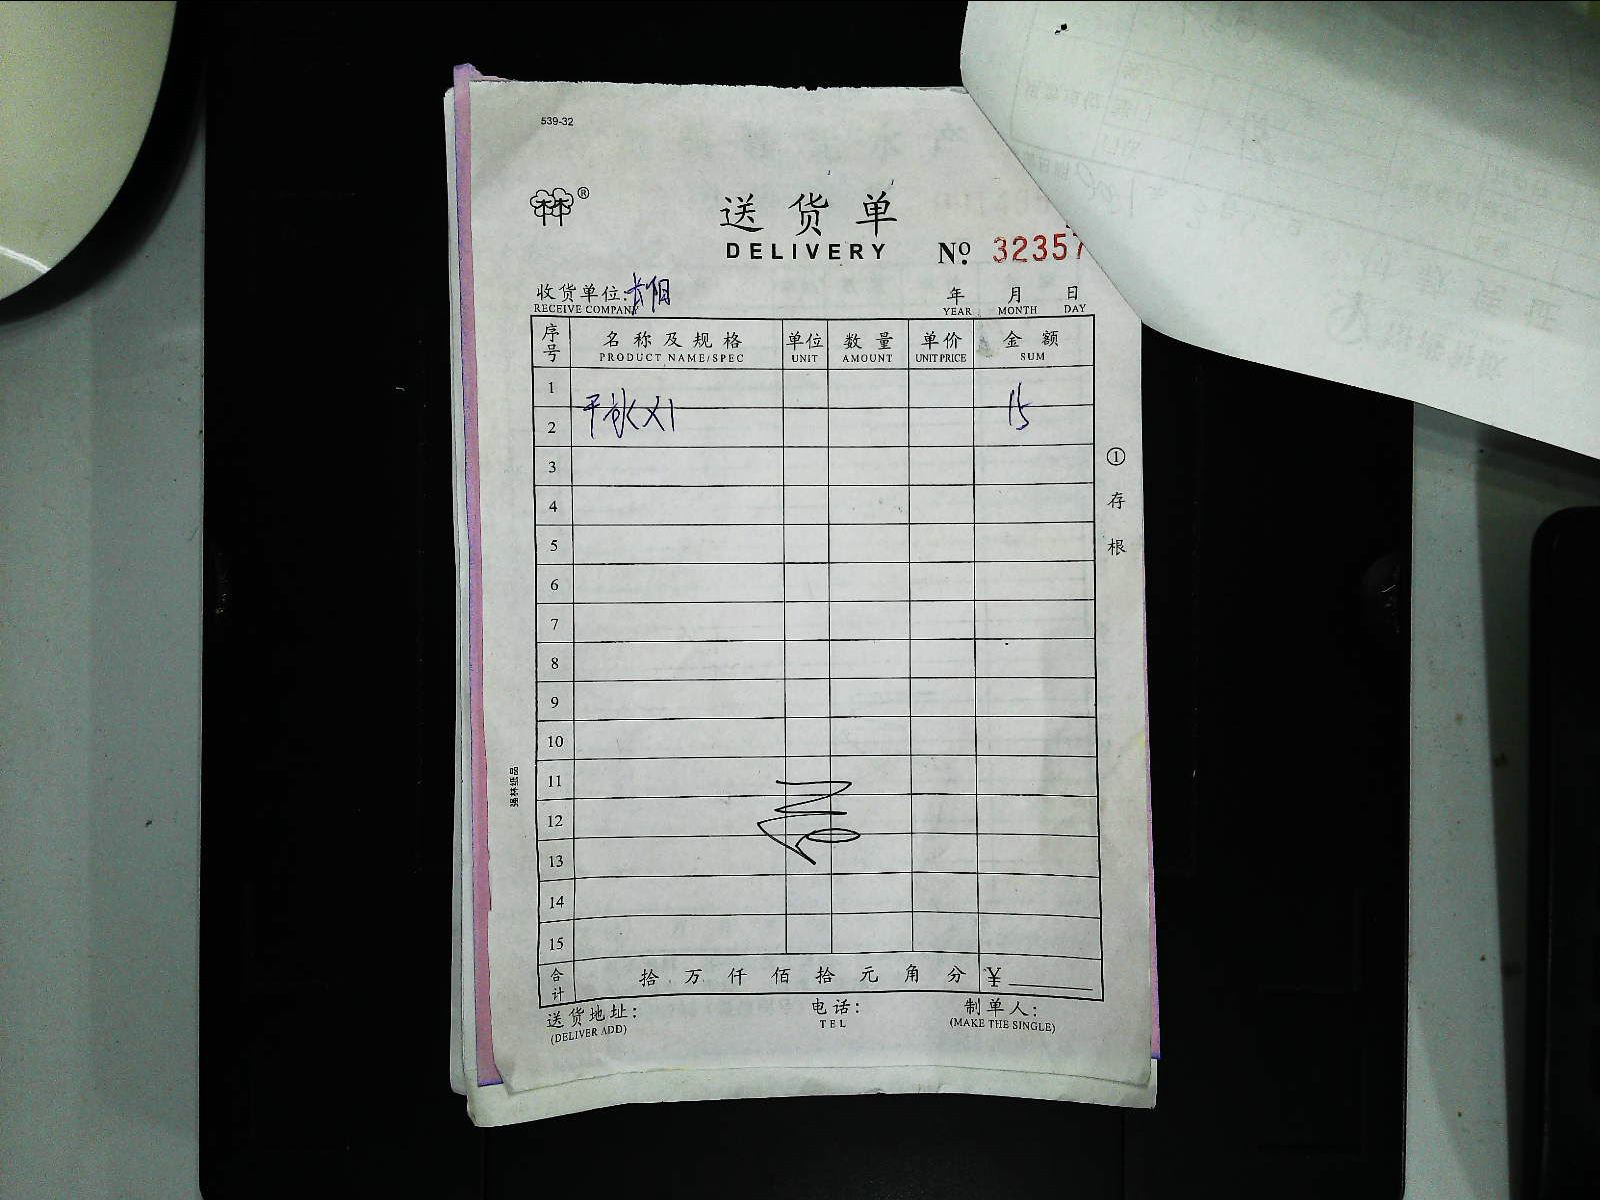 539-32
®
送货单
DELIVERY
№ 32357
收货单位:
RECEIVE COMPANY
年 月 日
YEAR MONTH DAY
序号 名称及规格 单位 数量 单价 金额
PRODUCT NAME/SPEC UNIT AMOUNT UNIT PRICE SUM
1
2 干冰X1 15
3
4
5
6
7
8
9
10
11
12
13
14
15
合计 拾 万 仟 佰 拾 元 角 分 ¥
送货地址: 电话: 制单人:
(DELIVER ADD) TEL (MAKE THE SINGLE)
① 存根
强林纸品